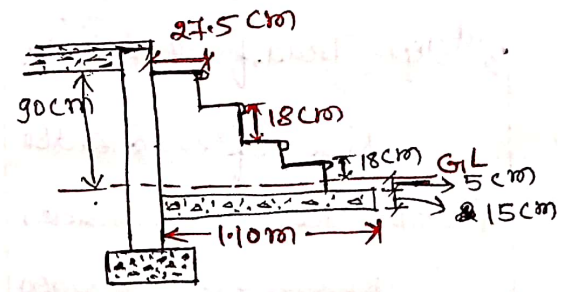 27.5 cm
90cm
18cm
18cm
GL
5 cm
15cm
1.10m